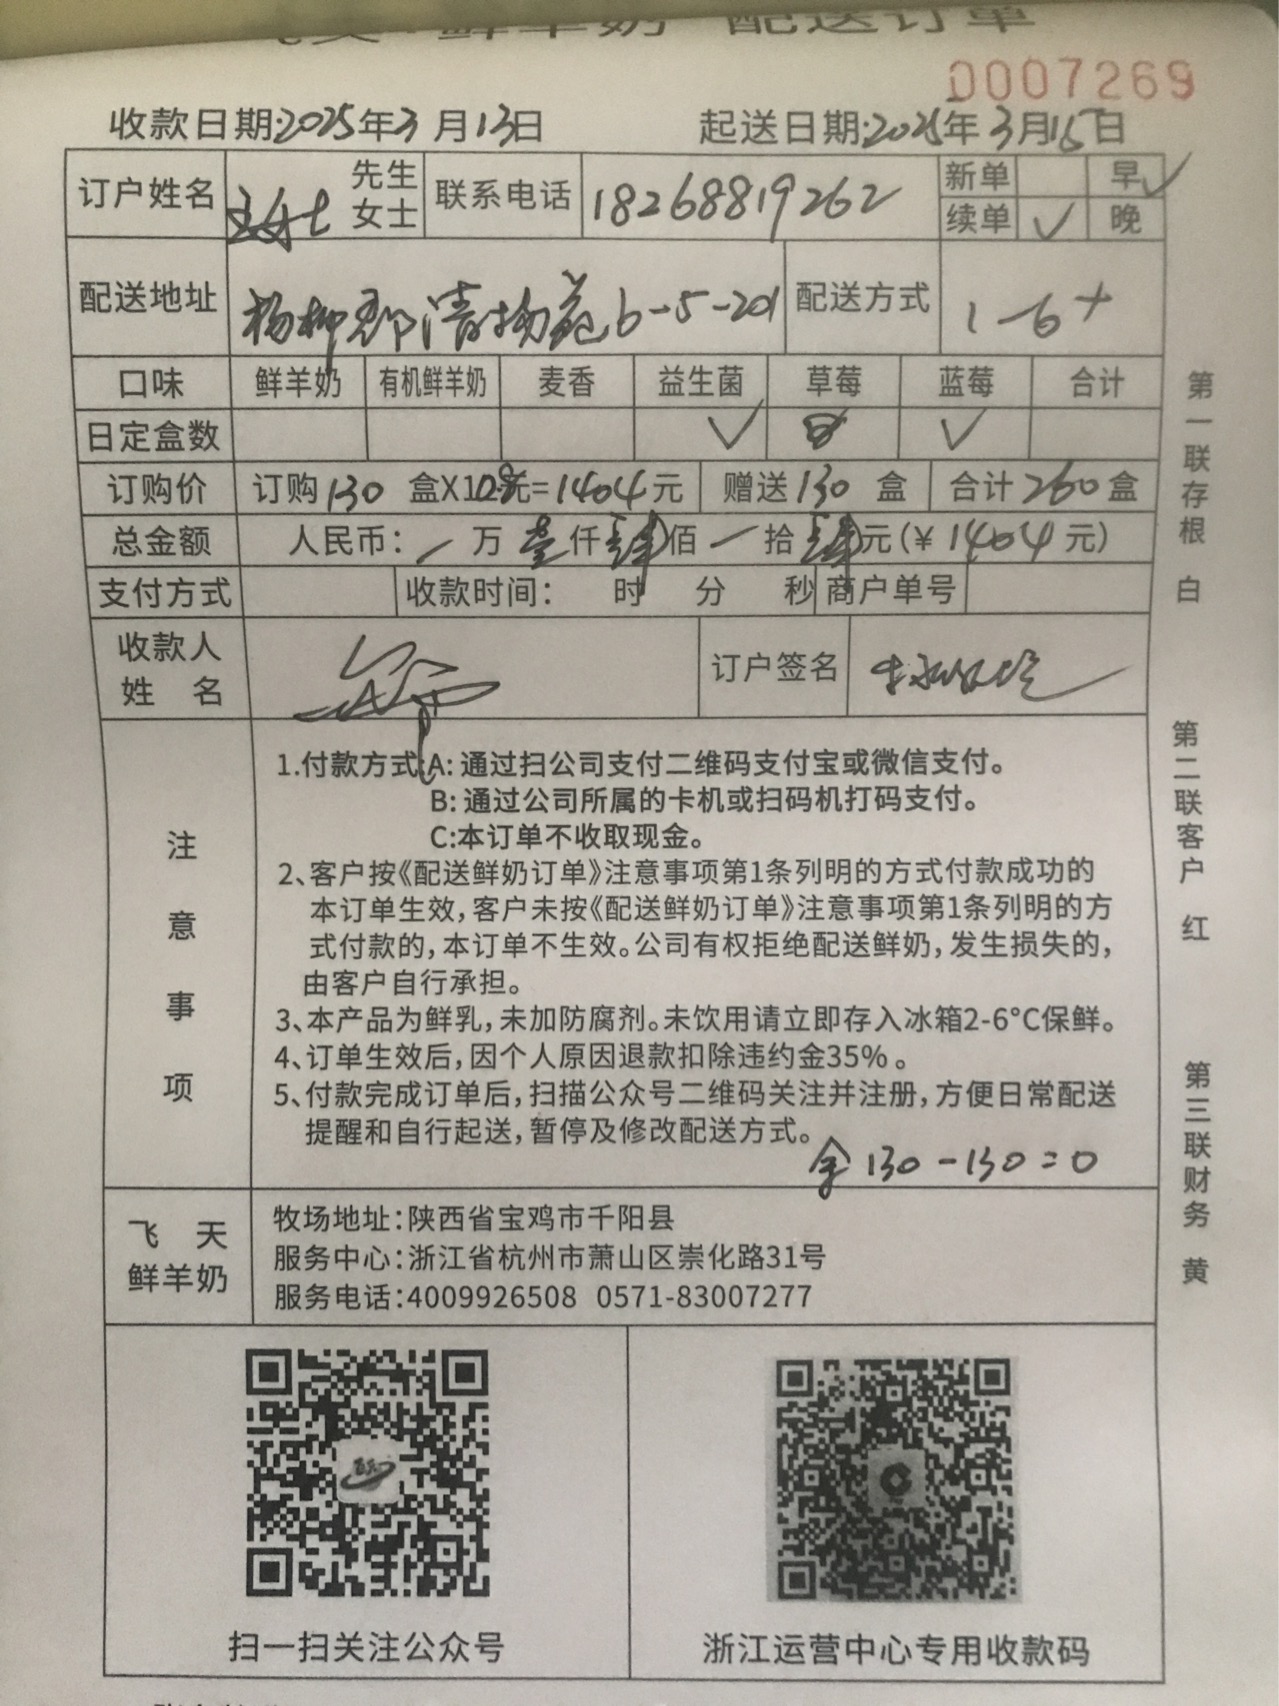 鲜羊奶 配送订单
0007269
收款日期:2025年3月13日 起送日期:2025年3月15日
订户姓名 女士 先生 女士 联系电话 18268819262 新单 早✓
续单 ✓ 晚
配送地址 杨柳郡清扬苑6-5-201 配送方式 1-6+
口味 鲜羊奶 有机鲜羊奶 麦香 益生菌 草莓 蓝莓 合计
日定盒数 ✓ ✓
订购价 订购130 盒X10.8元=1404元 赠送130 盒 合计260盒
总金额 人民币: / 万 壹仟肆佰 / 拾 肆元(¥1404元)
支付方式 收款时间: 时 分 秒 商户单号
收款人姓名 订户签名
注意事项
1.付款方式:A:通过扫公司支付二维码支付宝或微信支付。
B:通过公司所属的卡机或扫码机打码支付。
C:本订单不收取现金。
2、客户按《配送鲜奶订单》注意事项第1条列明的方式付款成功的
本订单生效,客户未按《配送鲜奶订单》注意事项第1条列明的方
式付款的,本订单不生效。公司有权拒绝配送鲜奶,发生损失的,
由客户自行承担。
3、本产品为鲜乳,未加防腐剂。未饮用请立即存入冰箱2-6°C保鲜。
4、订单生效后,因个人原因退款扣除违约金35%。
5、付款完成订单后,扫描公众号二维码关注并注册,方便日常配送
提醒和自行起送,暂停及修改配送方式。
余130-130=0
飞天鲜羊奶
牧场地址:陕西省宝鸡市千阳县
服务中心:浙江省杭州市萧山区崇化路31号
服务电话:4009926508 0571-83007277
扫一扫关注公众号 浙江运营中心专用收款码
第一联存根 白
第二联客户 红
第三联财务 黄